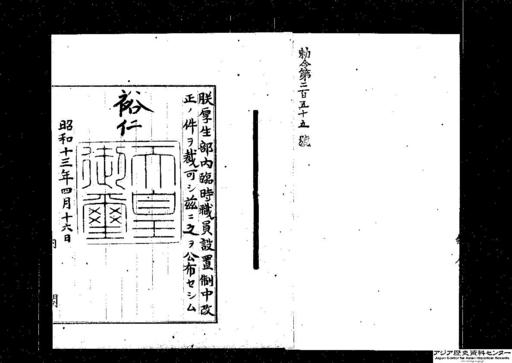 勅令第二百五十五號
朕厚生部内臨時職員設置制中改
正ノ件ヲ裁可シ茲ニ之ヲ公布セシム
裕仁
天皇
御璽
昭和十三年四月十六日
アジア歴史資料センター
Japan Center for Asian Historical Records